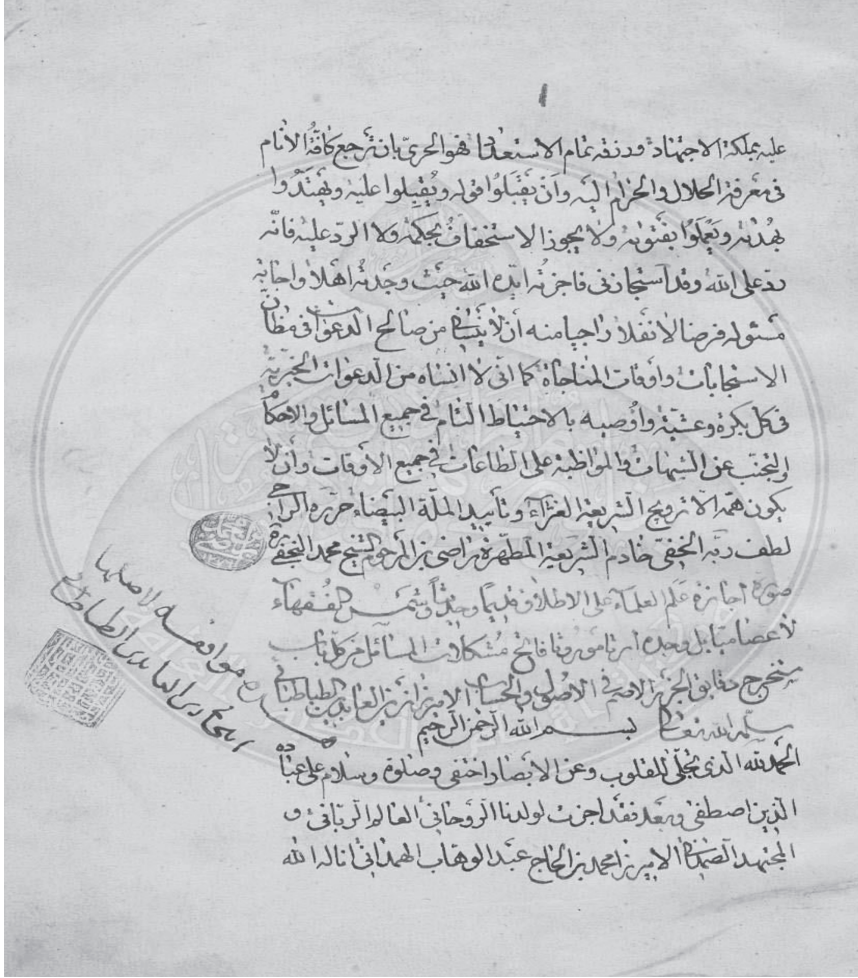 عليه بملكة الاجتهاد ورزقه تمام الاستعداد فهو الحريّ بان ترجع كافّة الانام
فى معرفة الحلال والحرام اليه وان يقبلوا قوله ويقبلوا عليه ويهتدوا
بهدئه ويعملوا بفتوئه ولا يجوز الاستخفاف بحكمه ولا الردّ عليه فانّه
ردّ على الله وقد استجازنى فاجزته ايّده الله حيث وجدته اهلا واجابة
مسئوله فرضا لا نفلا راجيا منه أن لا ينسانى من صالح الدعوات فى مظان
الاستجابات واوقات المناجاة كما انّى لا انساه من الدعوات الخيرية
فى كل بكرة وعشيّة واوصيه بالاحتياط التام فى جميع المسائل والاحكام
والتجنب عن الشبهات والمواظبة على الطاعات فى جميع الاوقات وأن لا
يكون همّه الا ترويج الشريعة الغرّاء وتأييد الملّة البيضاء حرّره الراجى
لطف ربّه الخفى خادم الشريعة المطهرة راضى بن المرحوم الشيخ محمد النجفى
صورة اجازة علم العلماء على الاطلاق قديما وحديثا وشمس الفقهاء
لأعصار بل وحده فاتح مشكلات المسائل من كل باب
مستخرج دقايق فى الاصول والحساب الاميرزا زين العابدين الطباطبائى
سلّمه الله تعالى بسم الله الرحمن الرحيم
الحمد لله الذى تجلّى للقلوب وعن الابصار اختفى وصلوة وسلام على عباده
الّذين اصطفى وبعد فقد اجزت لولدنا الروحانى العالم الربّانى و
المجتهد الصمدانى الاميرزا محمد بن الحاج عبد الوهاب الهمدانى اناله الله
موافقة لاصلها
الطباطبائى